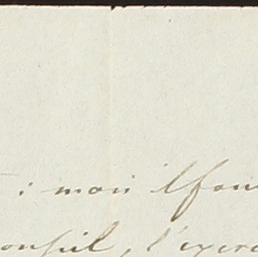 : mais il fau
onseil, l'exerc